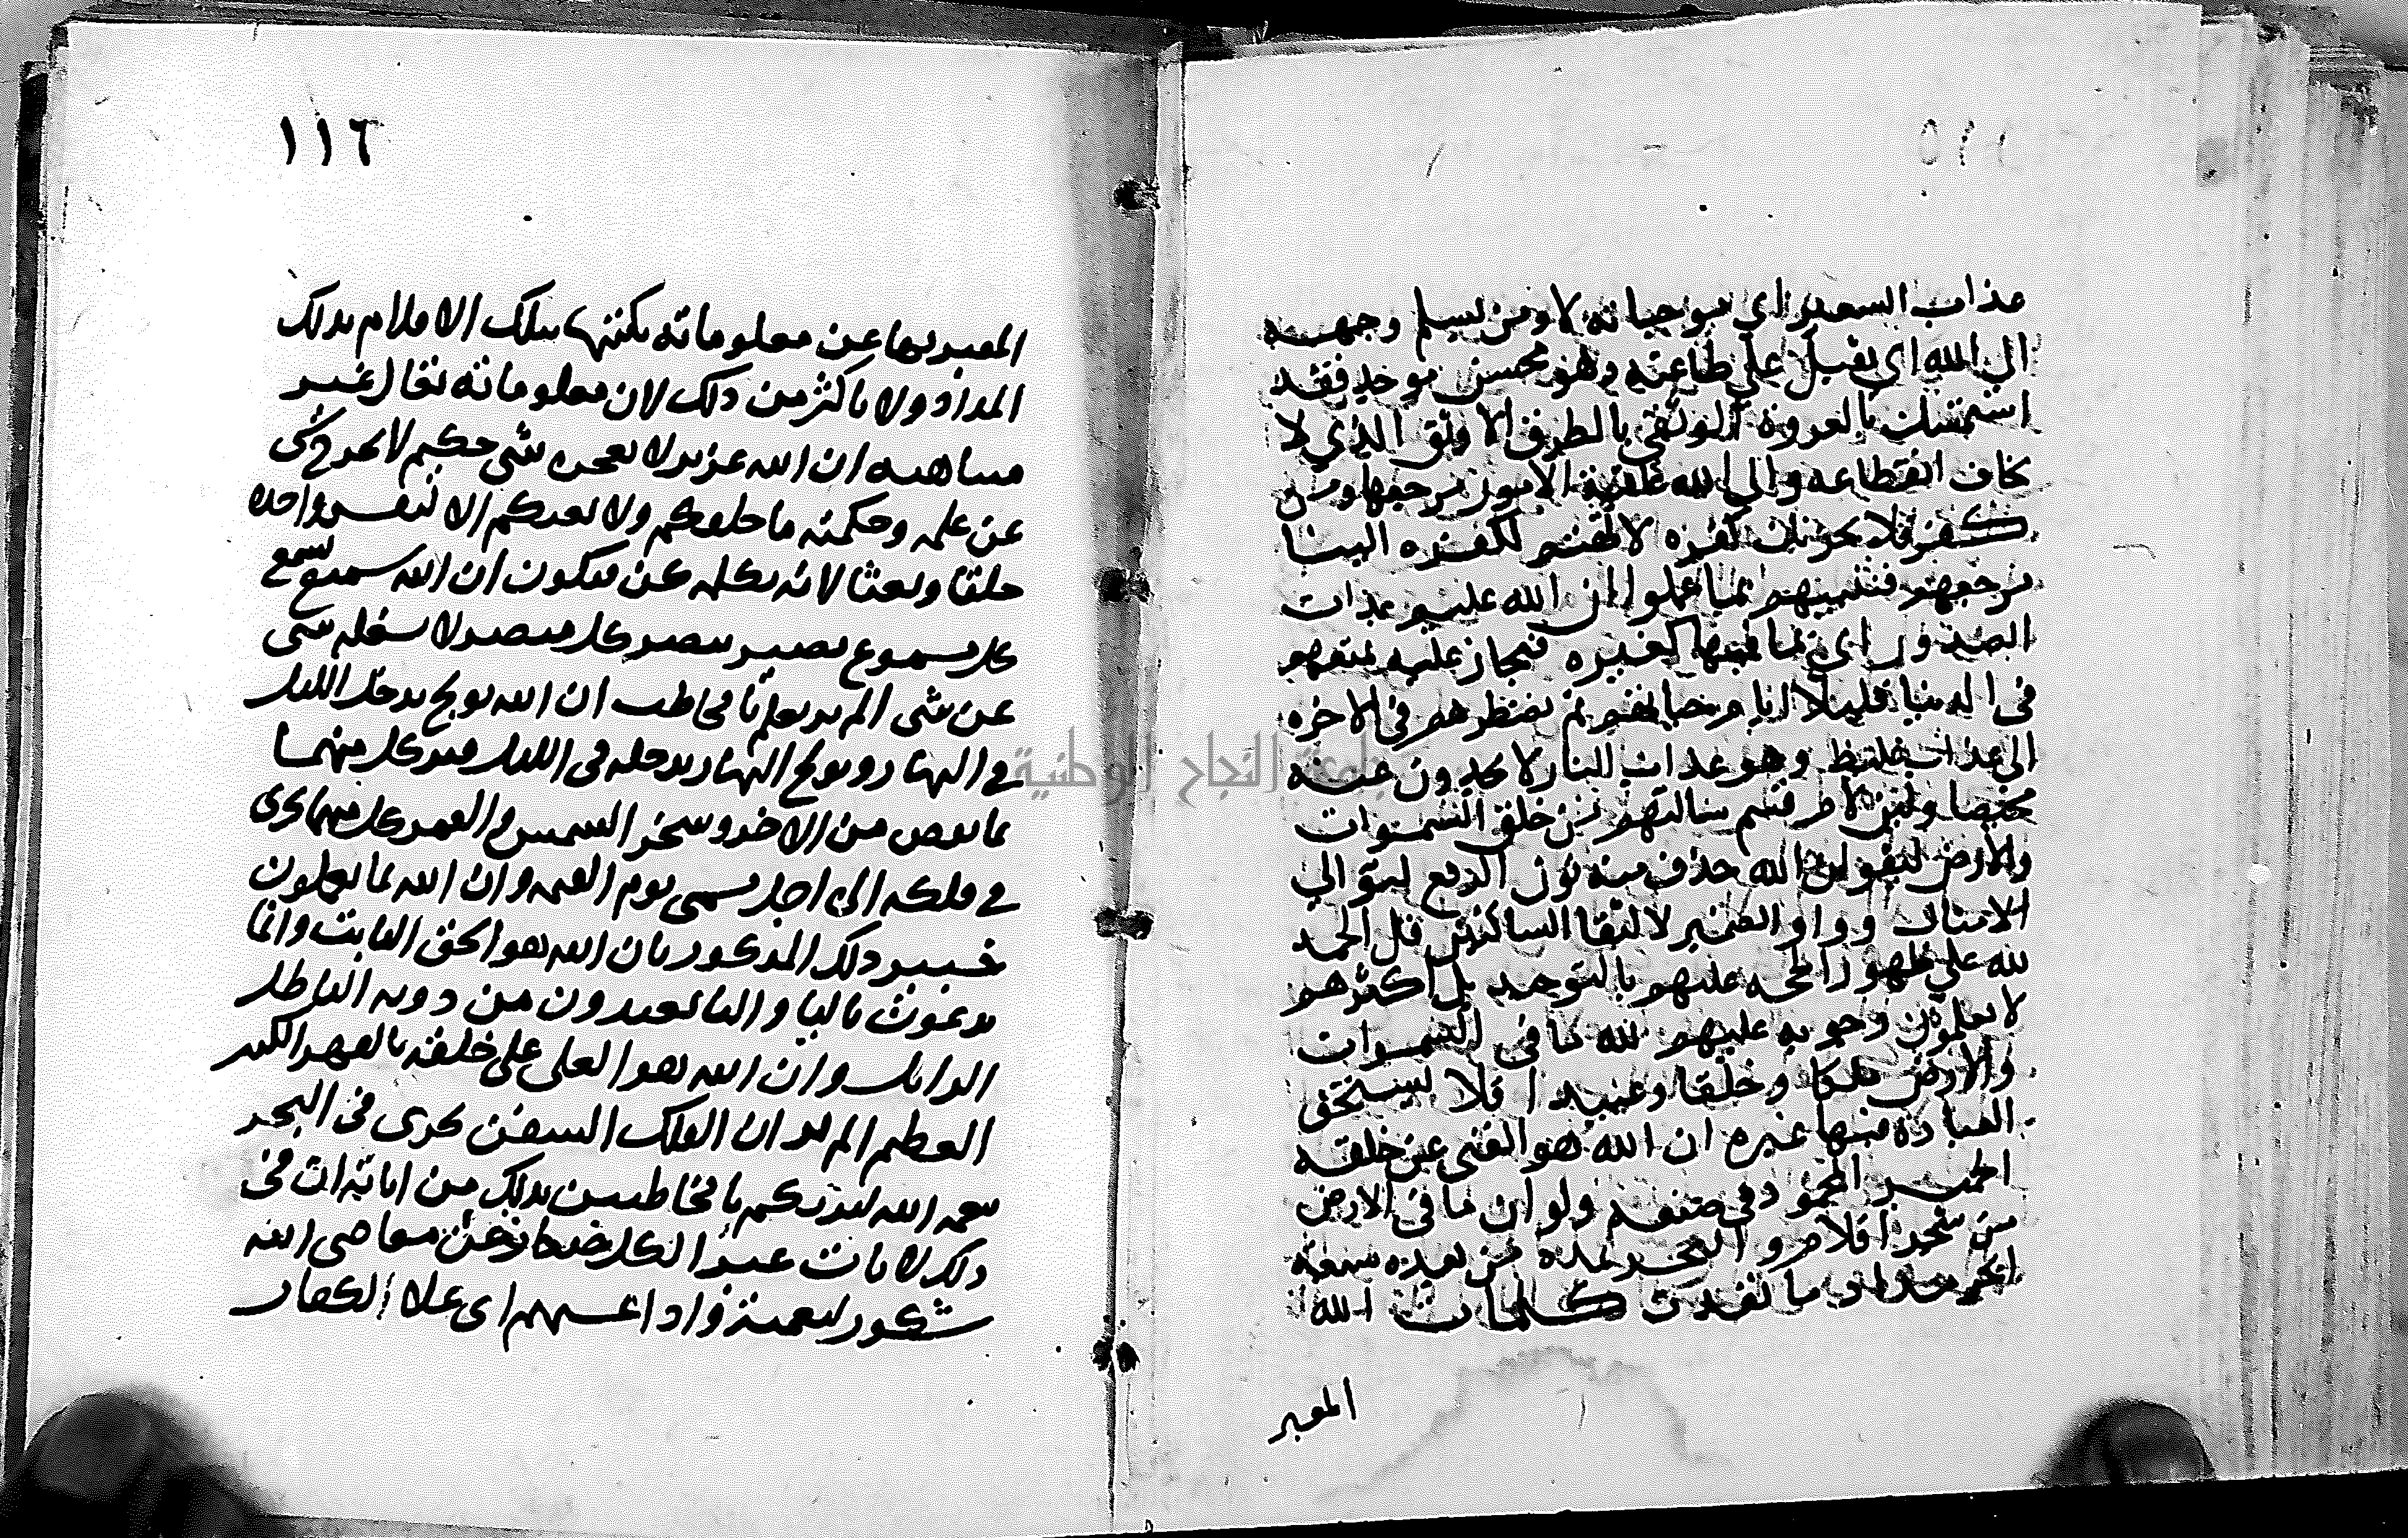 عذاب السعير اي موجباته لا ومن يسلم وجهه
الى الله اي يقبل على طاعته وهو محسن موحد فقد
استمسك بالعروة الوثقى بالطرف الاوثق الذي لا
يخاف انقطاعه والى الله عاقبة الامور مرجعها ومن
كفر فلا يحزنك كفره لا تهتم لكفره الينا
مرجعهم فننبيهم بما عملوا ان الله عليم بذات
الصدور اي بما فيها كغيره فمجاز عليه نمتعهم
في الدنيا قليلا ايام حياتهم ثم نضطرهم في الاخرة
الى عذاب غليظ وهو عذاب النار لا يجدون عنه
محيصا ولئن لام قسم سالتهم من خلق السموات
والارض ليقولن الله حذف منه نون الرفع لتوالي
الامثال وواو الضمير لالتقا الساكنين قل الحمد
لله على ظهور الحجه عليهم بالتوحيد بل اكثرهم
لا يعلمون وجوبه عليهم لله ما في السموات
والارض ملكا وخلقا وعبيدا فلا يستحق
العبادة فيها غيره ان الله هو الغني عن خلقه
الحميد المحمود في صنعه ولو ان ما في الارض
من شجرة اقلام والبحر يمده من بعده سبعة
ابحر مدادا ما نفدت كلمات الله
المعبر
١١٦
المعبر بها عن معلوماته بكتبها بتلك الاقلام بذلك
المداد ولا باكثر من ذلك لان معلوماته تعالى غير
متناهيه ان الله عزيز لا يعجزه شي حكيم لا يخرج شي
عن علمه وحكمته ما خلقكم ولا بعثكم الا كنفس واحدة
خلقا وبعثا لانه بكلمه كن فيكون ان الله سميع يسمع
كل مسموع بصير يبصر كل مبصر لا يشغله شي
عن شي الم تر تعلم يا مخاطب ان الله يولج يدخل الليل
في النهار ويولج النهار يدخله في الليل فيزيد كل منهما
بما نقص من الاخر وسخر الشمس والقمر كل منهما يجري
في فلكه الى اجل مسمى يوم القيمه وان الله بما تعملون
خبير ذلك المذكور بان الله هو الحق الثابت وانما
يدعون باليا والتا تعبدون من دونه الباطل
الزايل وان الله هو العلي على خلقه بالقهر الكبير
العظيم الم تر ان الفلك السفن تجري في البحر
بنعمه الله ليريكم يا مخاطبين بذلك من اياته ان في
ذلك لايات عبرا لكل صبار عن معاصي الله
شكور لنعمته واذا غشيهم اي علا الكفار